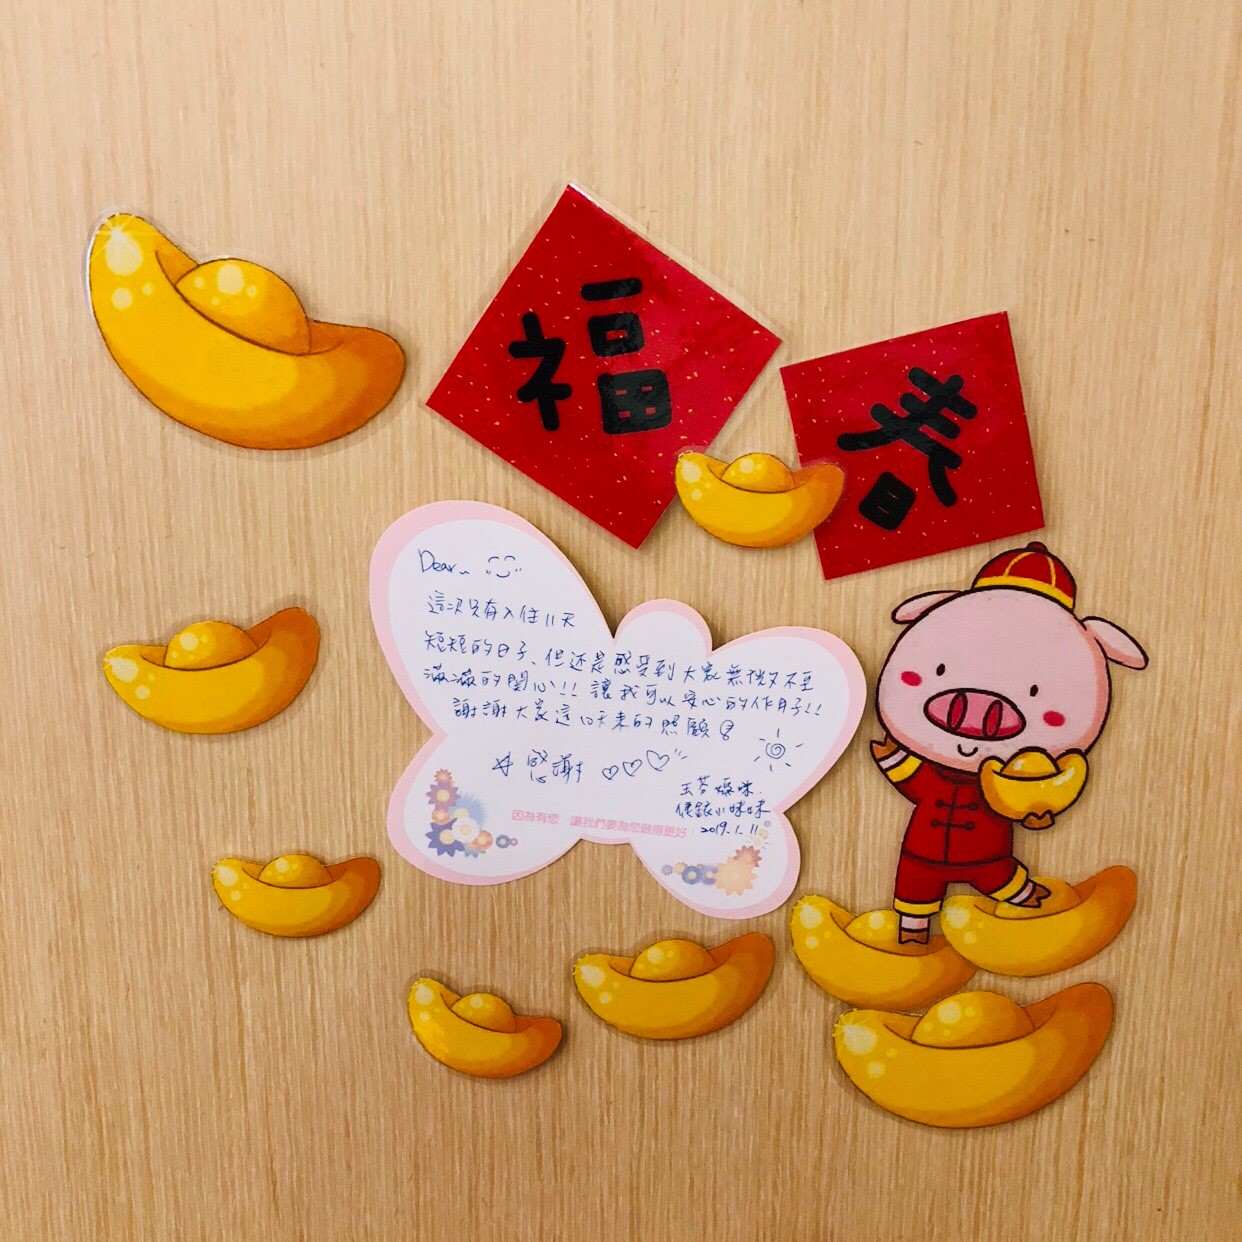 福
春
Dear~
這次只有入住11天
短短的日子、但还是感受到大家無微不至
滿滿的開心!! 讓我可以安心的作月子!!
謝謝大家這10天來的照顧
感謝
媽咪.
小咪咪
因為有您 讓我們要為您做得更好
2019.1.11